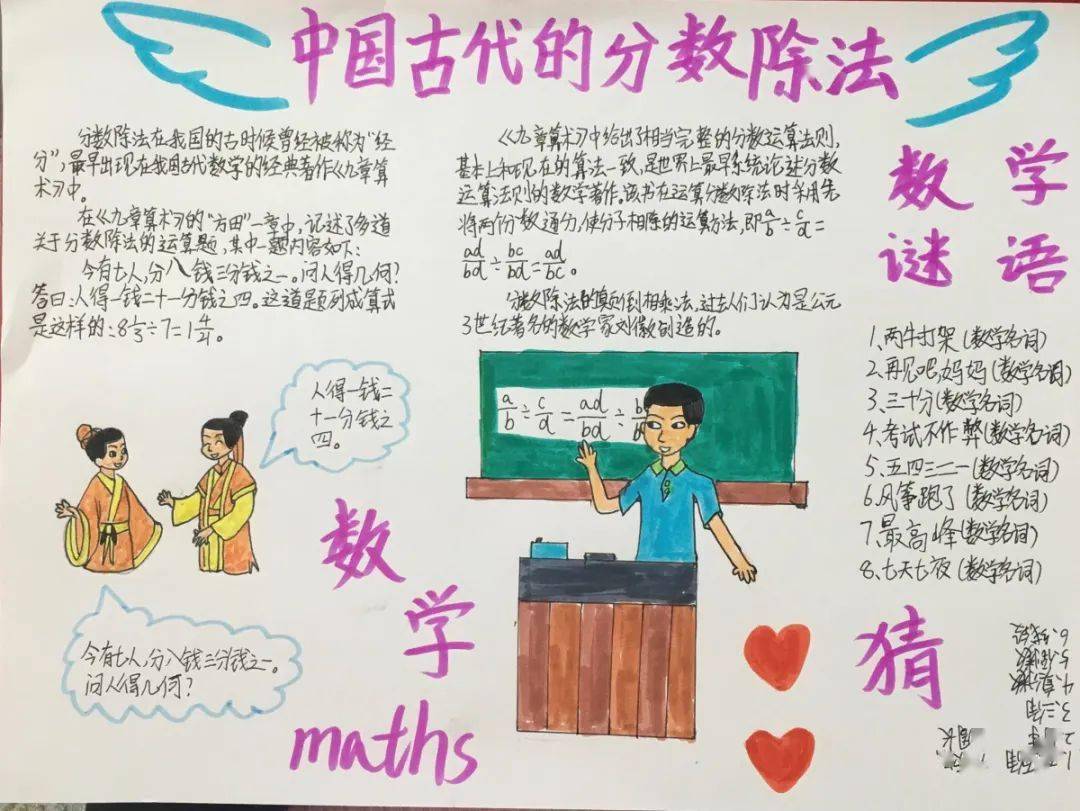 中国古代的分数除法
分数除法在我国的古时候曾经被称为“经
分”,最早出现在我国古代数学的经典著作《九章算
术》中。
在《九章算术》的“方田”一章中,记述了多道
关于分数除法的运算题,其中一题内容如下:
今有七人,分八钱三分钱之一。问人得几何?
答曰:人得一钱二十一分钱之四。这道题列成算式
是这样的:8⅓÷7=1 4/21。
《九章算术》中给出了相当完整的分数运算法则,
基本上和现在的算法一致,是世界上最早系统论述分数
运算法则的数学著作。该书在运算分数除法时采用先
将两个分数通分,使分子相除的运算方法,即a/b÷c/d=
ad/bd÷bc/bd=ad/bc。
分数除法的颠倒相乘法,过去人们认为是公元
3世纪著名的数学家刘徽创造的。
人得一钱二
十一分钱之
四。
今有七人,分八钱三分钱之一。
问人得几何?
a/b÷c/d=ad/bd÷
数
学
maths
数学
谜语
1、两牛打架(数学名词)
2、再见吧,妈妈(数学名词)
3、三十分(数学名词)
4、考试不作弊(数学名词)
5、五四三二一(数学名词)
6、风筝跑了(数学名词)
7、最高峰(数学名词)
8、七天七夜(数学名词)
猜